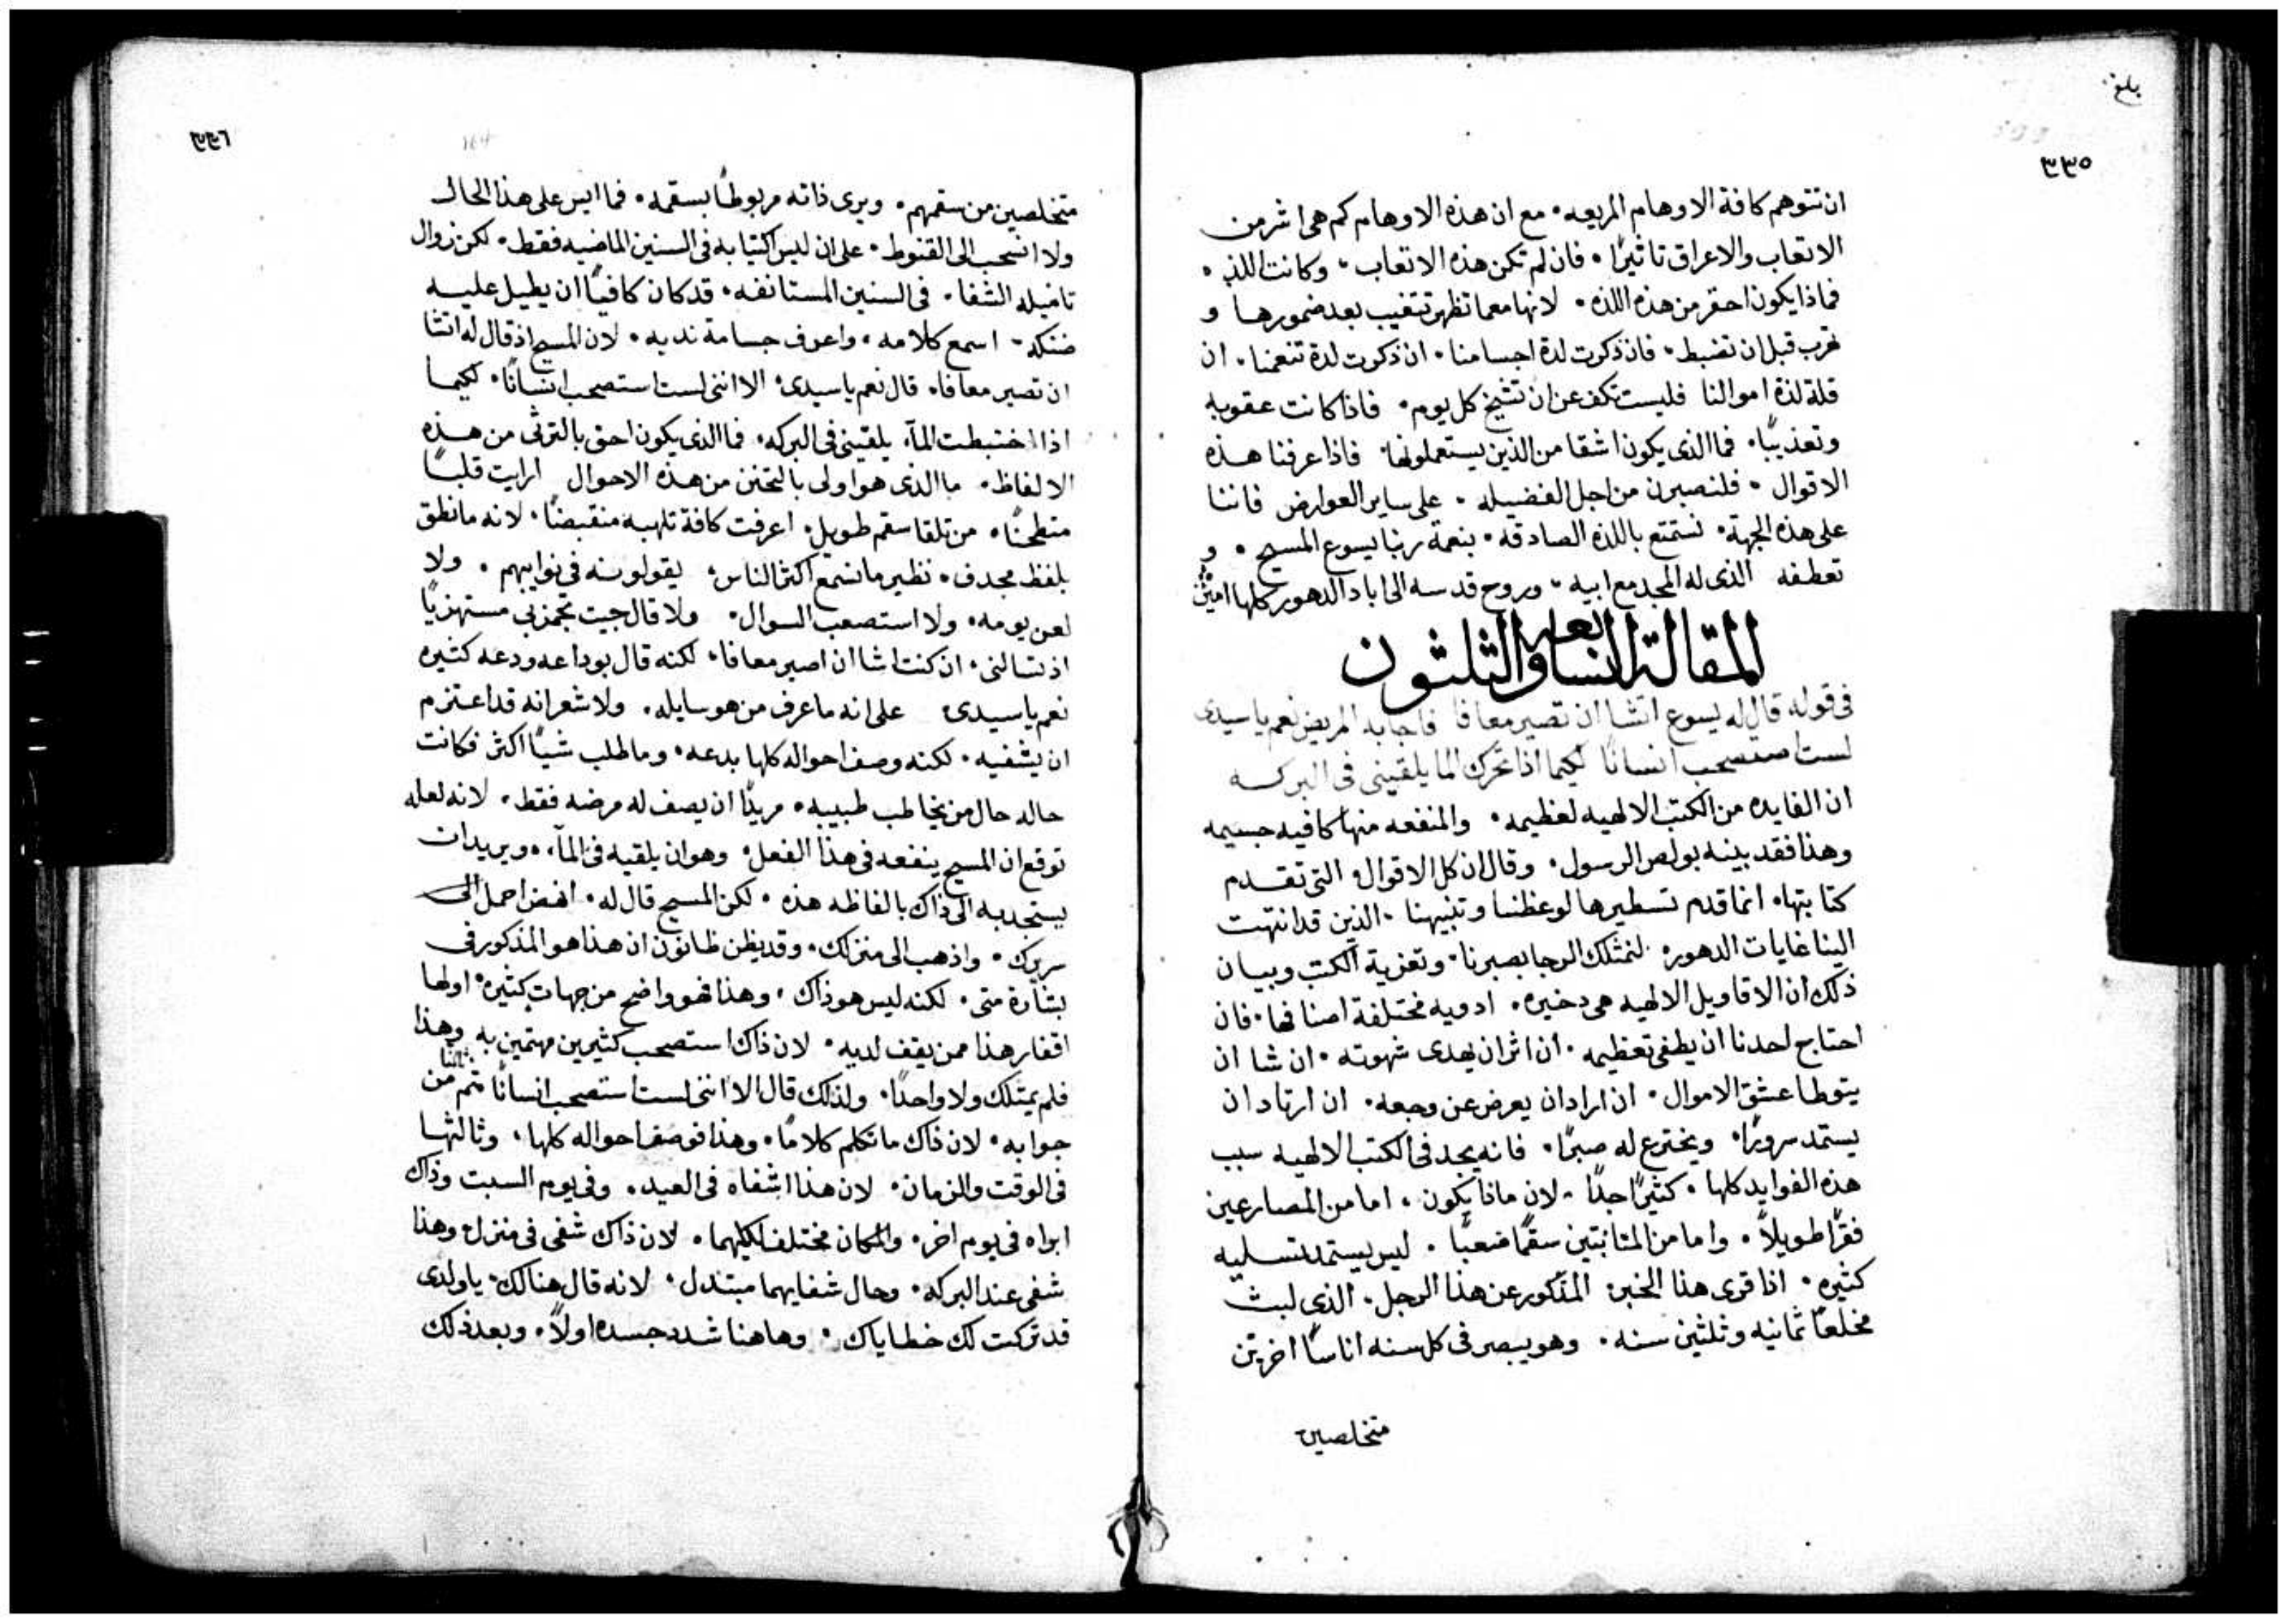 بلغ
٣٣٥
ان تتوهم كافة الاوهام المريعه٠ مع ان هذه الاوهام كم هى اشر من
الاتعاب والاعراق تاثيرًا٠ فان لم تكن هذه الاتعاب٠ وكانت اللذه
فماذا يكون احقر من هذه اللذه٠ لانها معما تظهر تتغيب بعد ضمورها و
تهرب قبل ان تضبط٠ فان ذكرت لذة اجسامنا٠ ان ذكرت لذة تنعمنا٠ ان
قلة لذة اموالنا فليست تكف عن ان تشيخ كل يوم٠ فاذا كانت عقوبه
وتعذيبًا٠ فما الذى يكون اشقا من الذين يستعملونها٠ فاذا عرفنا هذه
الاقوال٠ فلنصبرن من اجل الفضيله٠ على ساير العوارض فاننا
على هذه الجهة٠ نستمتع باللذه الصادقه٠ بنعمة ربنا يسوع المسيح٠ و
تعطفه الذى له المجد مع ابيه٠ وروح قدسه الى اباد الدهور كلها امين
المقالة السابعه والثلثون
فى قوله قال له يسوع اتشا ان تصير معافا فاجابه المريض نعم ياسيدى
لست استصحب انسانًا لكيما اذا تحرك الما يلقينى فى البركه
ان الفايده من الكتب الالهيه لعظيمه٠ والمنفعه منها كافيه جسيمه
وهذا فقد بينه بولص الرسول٠ وقال ان كل الاقوال التى تقدم
كتابتها٠ انما قدم تسطيرها لوعظنا وتنبيهنا٠ الذين قد انتهت
الينا غايات الدهور٠ لنمتلك الرجا بصبرنا٠ وتعزية الكتب وبيان
ذلك ان الاقاويل الالهيه هى دخيره٠ ادويه مختلفة اصنافها٠ فان
احتاج احدنا ان يطفى تعظيمه٠ ان اثر ان يهدى شهوته٠ ان شا ان
يتوطا عشق الاموال٠ ان اراد ان يعرض عن وجعه٠ ان ارتاد ان
يستمد سرورًا٠ ويخترع له صبرًا٠ فانه يجد فى الكتب الالهيه سبب
هذه الفوايد كلها٠ كثيرًا جدًا٠ لان ماذا يكون٠ اما من المصارعين
فقرًا طويلًا٠ واما من المثابتين سقمًا صعبًا٠ ليس يستمد تسليه
كثيره٠ اذا قرى هذا الخبر٠ المذكور عن هذا الرجل٠ الذى لبث
مخلعًا ثمانيه وثلثين سنه٠ وهو يبصر فى كل سنه اناسًا اخرين
متخلصين
٣٣٦
164
متخلصين من سقمهم٠ ويرى ذاته مربوطًا بسقمه٠ فما ايس على هذا الحال
ولا انسحب الى القنوط٠ على ان ليس اكتيابه فى السنين الماضيه فقط٠ لكن زوال
تاميله الشفا٠ فى السنين المستانفه٠ قد كان كافيًا ان يطيل عليه
ضنكه٠ اسمع كلامه٠ واعرف جسامة ندبه٠ لان المسيح اذ قال له اتشا
ان تصير معافا٠ قال نعم ياسيدى٠ الا اننى لست استصحب انسانًا٠ لكيما
اذا اختبطت المآء يلقينى فى البركه٠ فما الذى يكون احق بالترثى من هذه
الالفاظ٠ ما الذى هو اولى بالتحنن من هذه الاحوال ارايت قلبًا
منطحنًا٠ من تلقا سقم طويل٠ اعرفت كافة تلهبه منقبضًا٠ لانه ما نطق
بلفظ مجدف٠ نظير ما نسمع اكثر الناس٠ يقولونه فى نوايبهم٠ ولا
لعن يومه٠ ولا استصعب السوال٠ ولا قال جيت تجمز بى مستهزيًا
اذ تسالنى٠ ان كنت اشا ان اصير معافا٠ لكنه قال بوداعه ودعه كثيره
نعم ياسيدى٠ على انه ما عرف من هو سايله٠ ولا شعر انه قد اعتزم
ان يشفيه٠ لكنه وصف احواله كلها بدعه٠ وما طلب شيًا اكثر فكانت
حاله حال من يخاطب طبيبه٠ مريدًا ان يصف له مرضه فقط٠ لانه لعله
توقع ان المسيح ينفعه فى هذا الفعل٠ وهو ان يلقيه فى المآء٠ ويريد ان
يستجدبه الى ذاك بالفاظه هذه٠ لكن المسيح قال له٠ انهض احمل الى
سريرك٠ واذهب الى منزلك٠ وقد يظن ظانون ان هذا هو المذكور فى
بشارة متى٠ لكنه ليس هو ذاك٠ وهذا فهو واضح من جهات كثيره٠ اولها
افقار هذا ممن يقف لديه٠ لان ذاك استصحب كثيرين مهتمين به وهذا
فلم يمتلك ولا واحدًا٠ ولذلك قال الا اننى لست استصحب انسانًا ثم من
جوابه٠ لان ذاك ما تكلم كلامًا٠ وهذا فوصف احواله كلها٠ وثالثها
فى الوقت والزمان٠ لان هذا اشفاه فى العيد٠ وفى يوم السبت وذاك
ابراه فى يوم اخر٠ والمكان مختلف لكليهما٠ لان ذاك شفى فى منزل وهذا
شفى عند البركه٠ وحال شفايهما مبتدل٠ لانه قال هنالك٠ ياولدى
قد تركت لك خطاياك٠ وهاهنا شدد جسده اولًا٠ وبعد ذلك